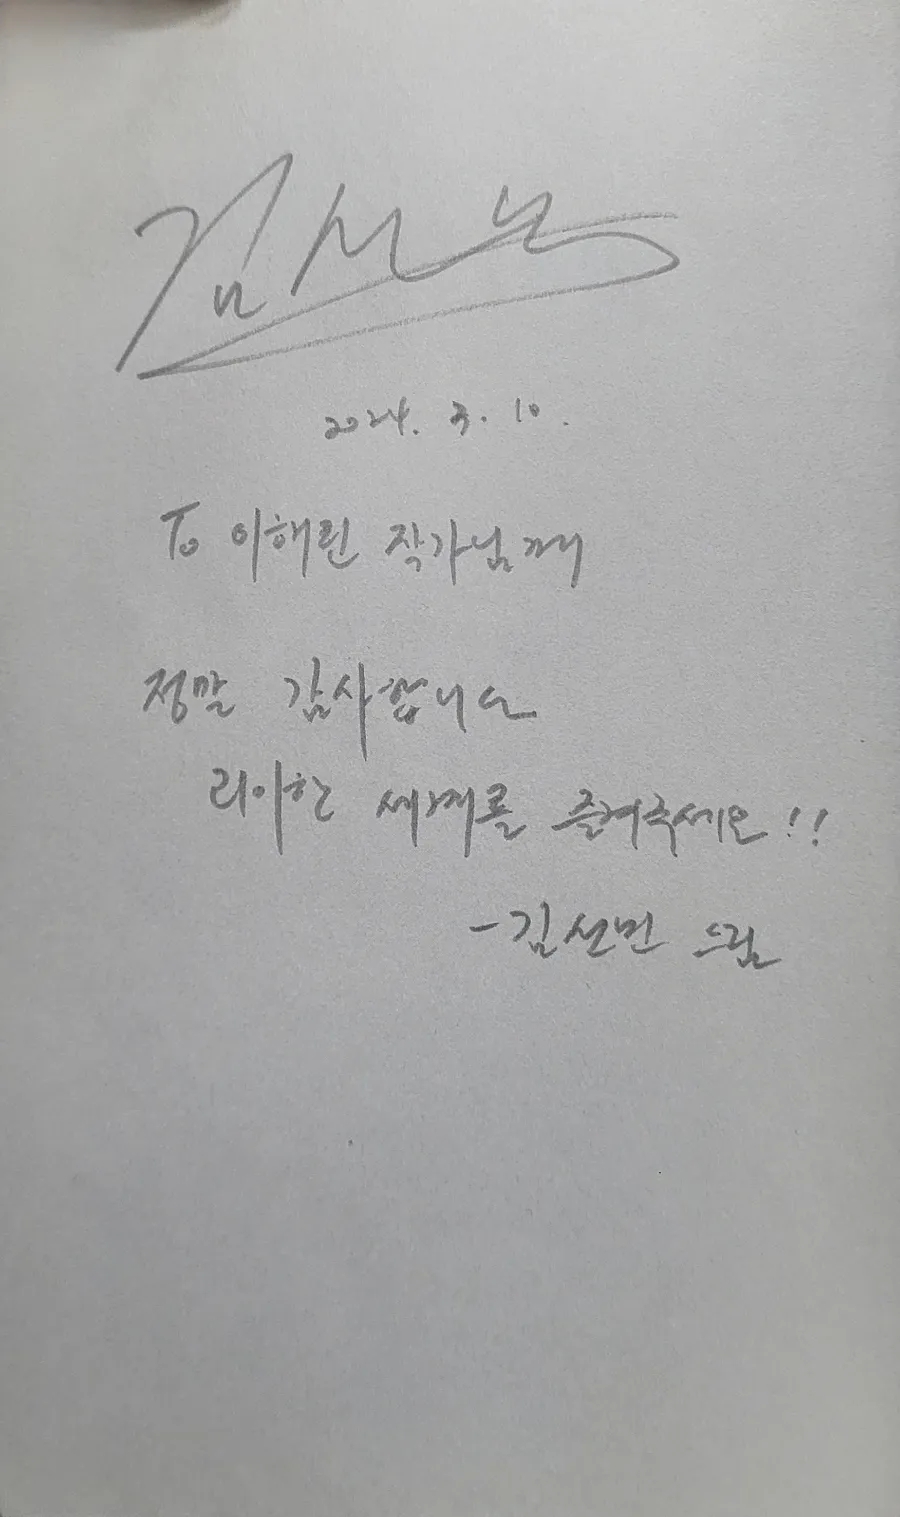 김선
2024. 3. 10.
To 이해린 작가님께
정말 감사합니다
리아한 세계를 즐겨주세요!!
-김선민 드림